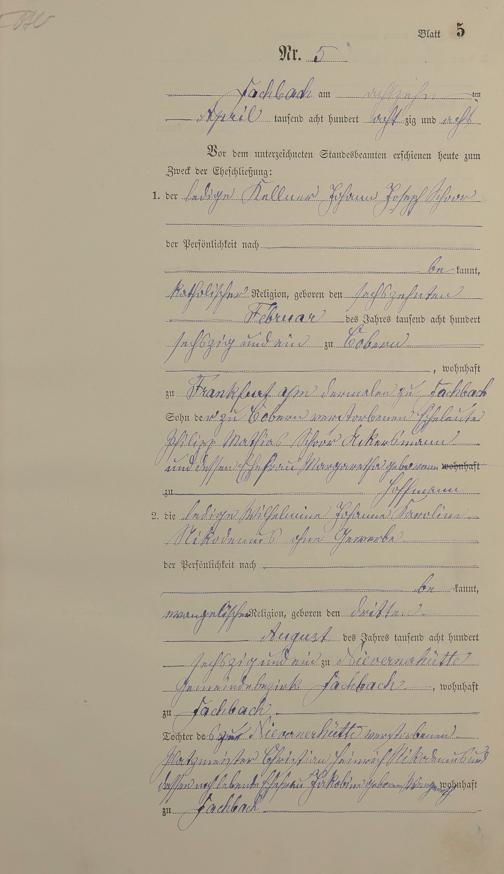 Blatt 5
Nr. 5
Fachbach am achtzehn ten
April tausend acht hundert acht zig und acht
Vor dem unterzeichneten Standesbeamten erschienen heute zum
Zweck der Eheschließung:
1. der ledige Kellner Johann Joseph Schoor
der Persönlichkeit nach
be kannt,
katholischer Religion, geboren den sechszehnten
Februar des Jahres tausend acht hundert
sechszig und ein zu Cobern
, wohnhaft
zu Frankfurt a/m dermalen zu Fachbach
Sohn der zu Cobern verstorbenen Eheleute
Philipp Mathias Schoor Ackersmann
und dessen Ehefrau Margaretha geborenen wohnhaft
zu Hoffmann
2. die ledige Wilhelmine Johanna Karoline
Nikodemus ohne Gewerbe
der Persönlichkeit nach
be kannt,
evangelischer Religion, geboren den dritten
August des Jahres tausend acht hundert
sechszig und ein zu Nievernerhütte
Gemeindebezirk Fachbach, wohnhaft
zu Fachbach
Tochter des zu Nievernerhütte verstorbenen
Platzmeister Christian Heinrich Nikodemus und
dessen noch lebende Ehefrau Jakobine geborenen wohnhaft
zu Fachbach